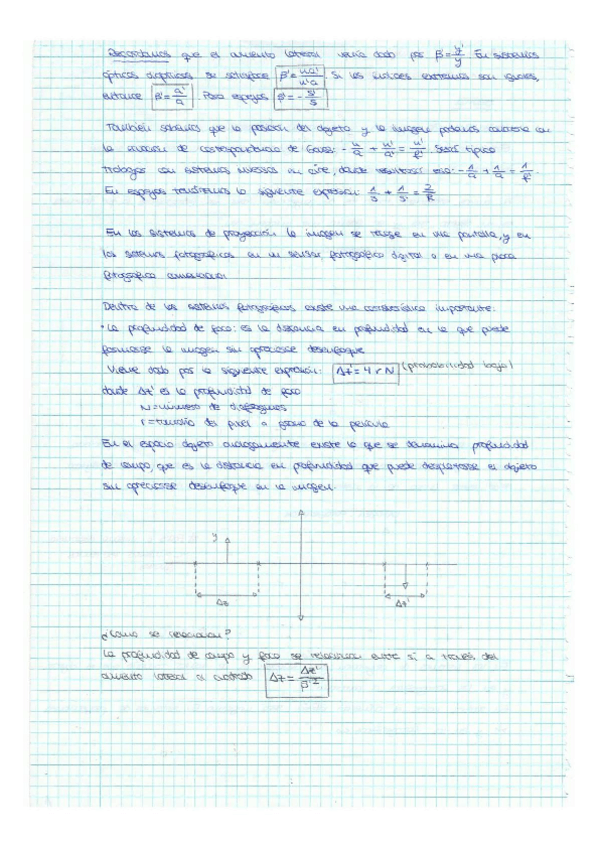 Recordamos que el aumento lateral venía dado por β' = y'/y. En sistemas
ópticos dióptricos se satisface β' = na'/n'a. Si los índices extremos son iguales,
entonces β' = a'/a. Para espejos β' = - s'/s
También sabemos que la posición del objeto y la imagen podemos con
la ecuación de correspondencia de Gauss: - n/a + n'/a' = n'/f'. Será típico
trabajar con sistemas inmersos en aire, donde: - 1/a + 1/a' = 1/f'.
En espejos tendremos la siguiente expresión: 1/s + 1/s' = 2/R
En los sistemas de proyección la imagen se recoge en una pantalla, y en
los sistemas fotográficos en un sensor fotográfico digital o en una placa
fotográfica convencional
Dentro de los sistemas fotográficos existe una característica importante:
· La profundidad de foco: es la distancia en profundidad en la que puede
formarse la imagen sin apreciarse desenfoque
Viene dado por la siguiente expresión: Δz' = 4 r N
donde Δz' es la profundidad de foco
N = número de diafragmas
r = tamaño del pixel o grano de la película
En el espacio objeto análogamente existe lo que se denomina profundidad
de campo, que es la distancia en profundidad que puede desplazarse el objeto
sin apreciarse desenfoque en la imagen.
y
Δz
Δz'
¿Cómo se relacionan?
La profundidad de campo y foco se relacionan entre sí a través del
aumento lateral al cuadrado Δz = Δz'/β'²